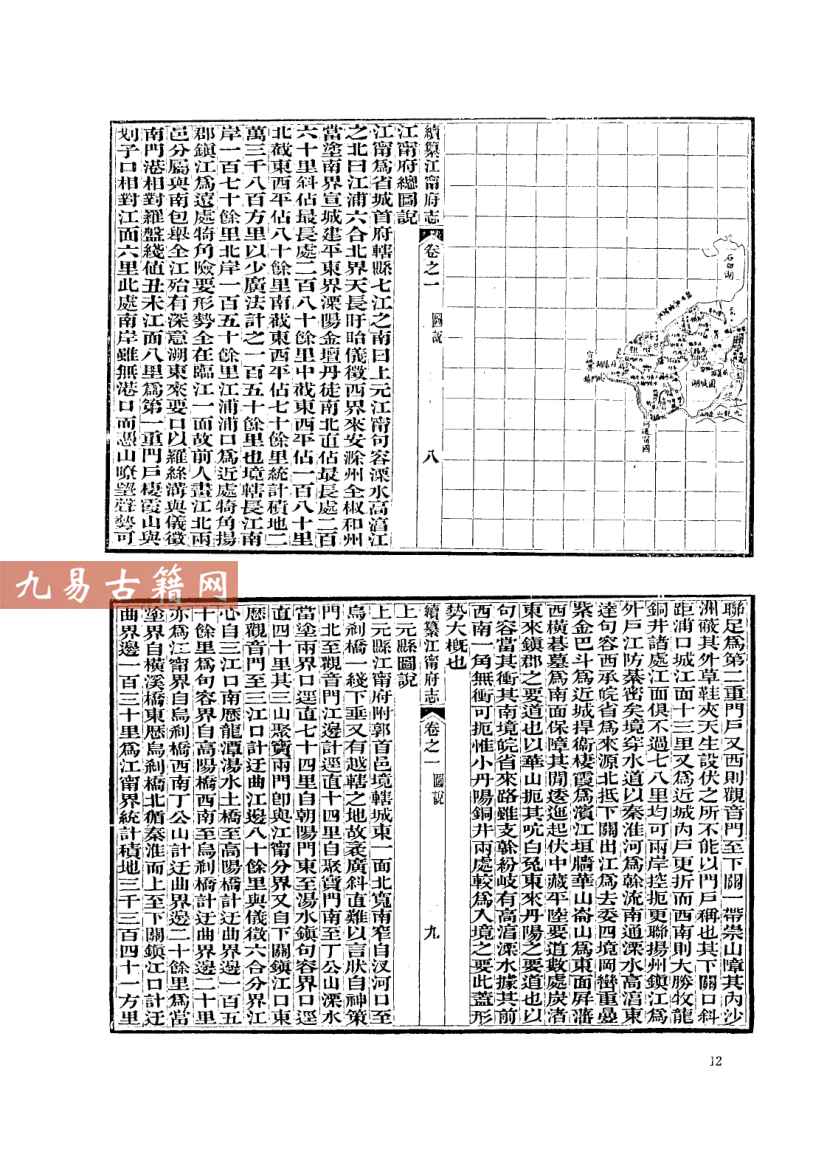 石臼湖
固城湖
續纂江甯府志 卷之一 圖說 八
江甯府總圖說
江甯爲省城首府轄縣七江之南曰上元江甯句容溧水高淳江
之北曰江浦六合北界天長盱眙儀徵西界來安滁州全椒和州
當塗南界宣城建平東界溧陽金壇丹徒南北直佔最長處二百
六十里斜佔最長處二百八十餘里中截東西平佔一百八十里
北截東西平佔八十餘里南截東西平佔七十餘里統計積地二
萬三千八百方里以少廣法計之一百五十餘里也境轄長江南
岸一百七十餘里北岸一百五十餘里江浦浦口爲近處犄角揚
郡鎮江爲遠處犄角險要形勢全在臨江一面故前人畫江北兩
邑分屬與南包舉全江殆有深意溯東來要口以羅絲溝與儀徵
南門港相對羅盤綫値丑未江面八里爲第一重門戶棲霞山與
划子口相對江面六里此處南岸雖無港口而憑山瞭望聲勢可
聯足爲第二重門戶又西則觀音門至下關一帶崇山障其內沙
洲蔽其外草鞋夾天生設伏之所不能以門戶稱也其下關口斜
距浦口城江面十三里又爲近城內戶更折而西南則大勝牧龍
銅井諸處江面俱不過七八里均可兩岸控扼更聯揚州鎮江爲
外戶江防綦密矣境穿水道以秦淮河爲幹流南通溧水高淳東
達句容西承皖省爲來源北抵下關出江爲去委四境岡巒重疊
紫金巴斗爲近城捍衞棲霞爲濱江垣牆華山崙山爲東面屛藩
西橫碁墓爲南面保障其閒逶迤起伏中藏平陸要道數處炭渚
東來鎮郡之要道也以華山扼其吭白兔東來丹陽之要道也以
句容當其衝其南境皖省來路雖支幹紛岐有高淳溧水據其前
西南一角無衝可扼惟小丹陽銅井兩處較爲入境之要此蓋形
勢大槪也
續纂江甯府志 卷之一 圖說 九
上元縣圖說
上元縣江甯府附郭首邑境轄城東一面北寬南窄自汊河口至
烏刹橋一綫下垂又有越轄之地故袤廣斜直難以言狀自神策
門北至觀音門江邊計逕直十四里自聚寶門南至丁公山溧水
當塗兩界口逕直七十四里自朝陽門東至湯水鎮句容界口逕
直四十里其三山聚寶兩門卽與江甯分界又自下關鎮江口東
歷觀音門至三江口計迂曲江邊八十餘里與儀徵六合分界江
心自三江口南歷龍潭湯水土橋至高陽橋計迂曲界邊一百五
十餘里爲句容界自高陽橋西南至烏刹橋計迂曲界邊二十里
亦爲江甯界自烏刹橋西南丁公山計迂曲界邊二十餘里爲當
塗界自橫溪橋東歷烏刹橋北循秦淮而上至下關鎮江口計迂
曲界邊一百三十里爲江甯界統計積地三千三百四十一方里
九易古籍网
12